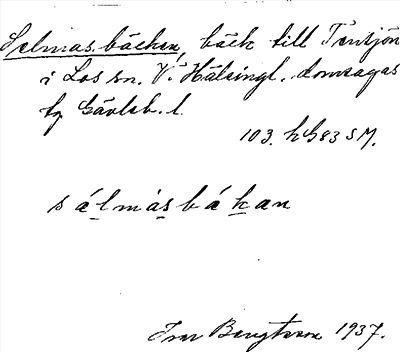 Selmasbäcken, bäck till Tensjön
i Los sn. V. Hälsingl. domsagas
tg Gävleb. l.
103. h G83 S M.
sálmásbákan
Ivar Bengtsson 1937.